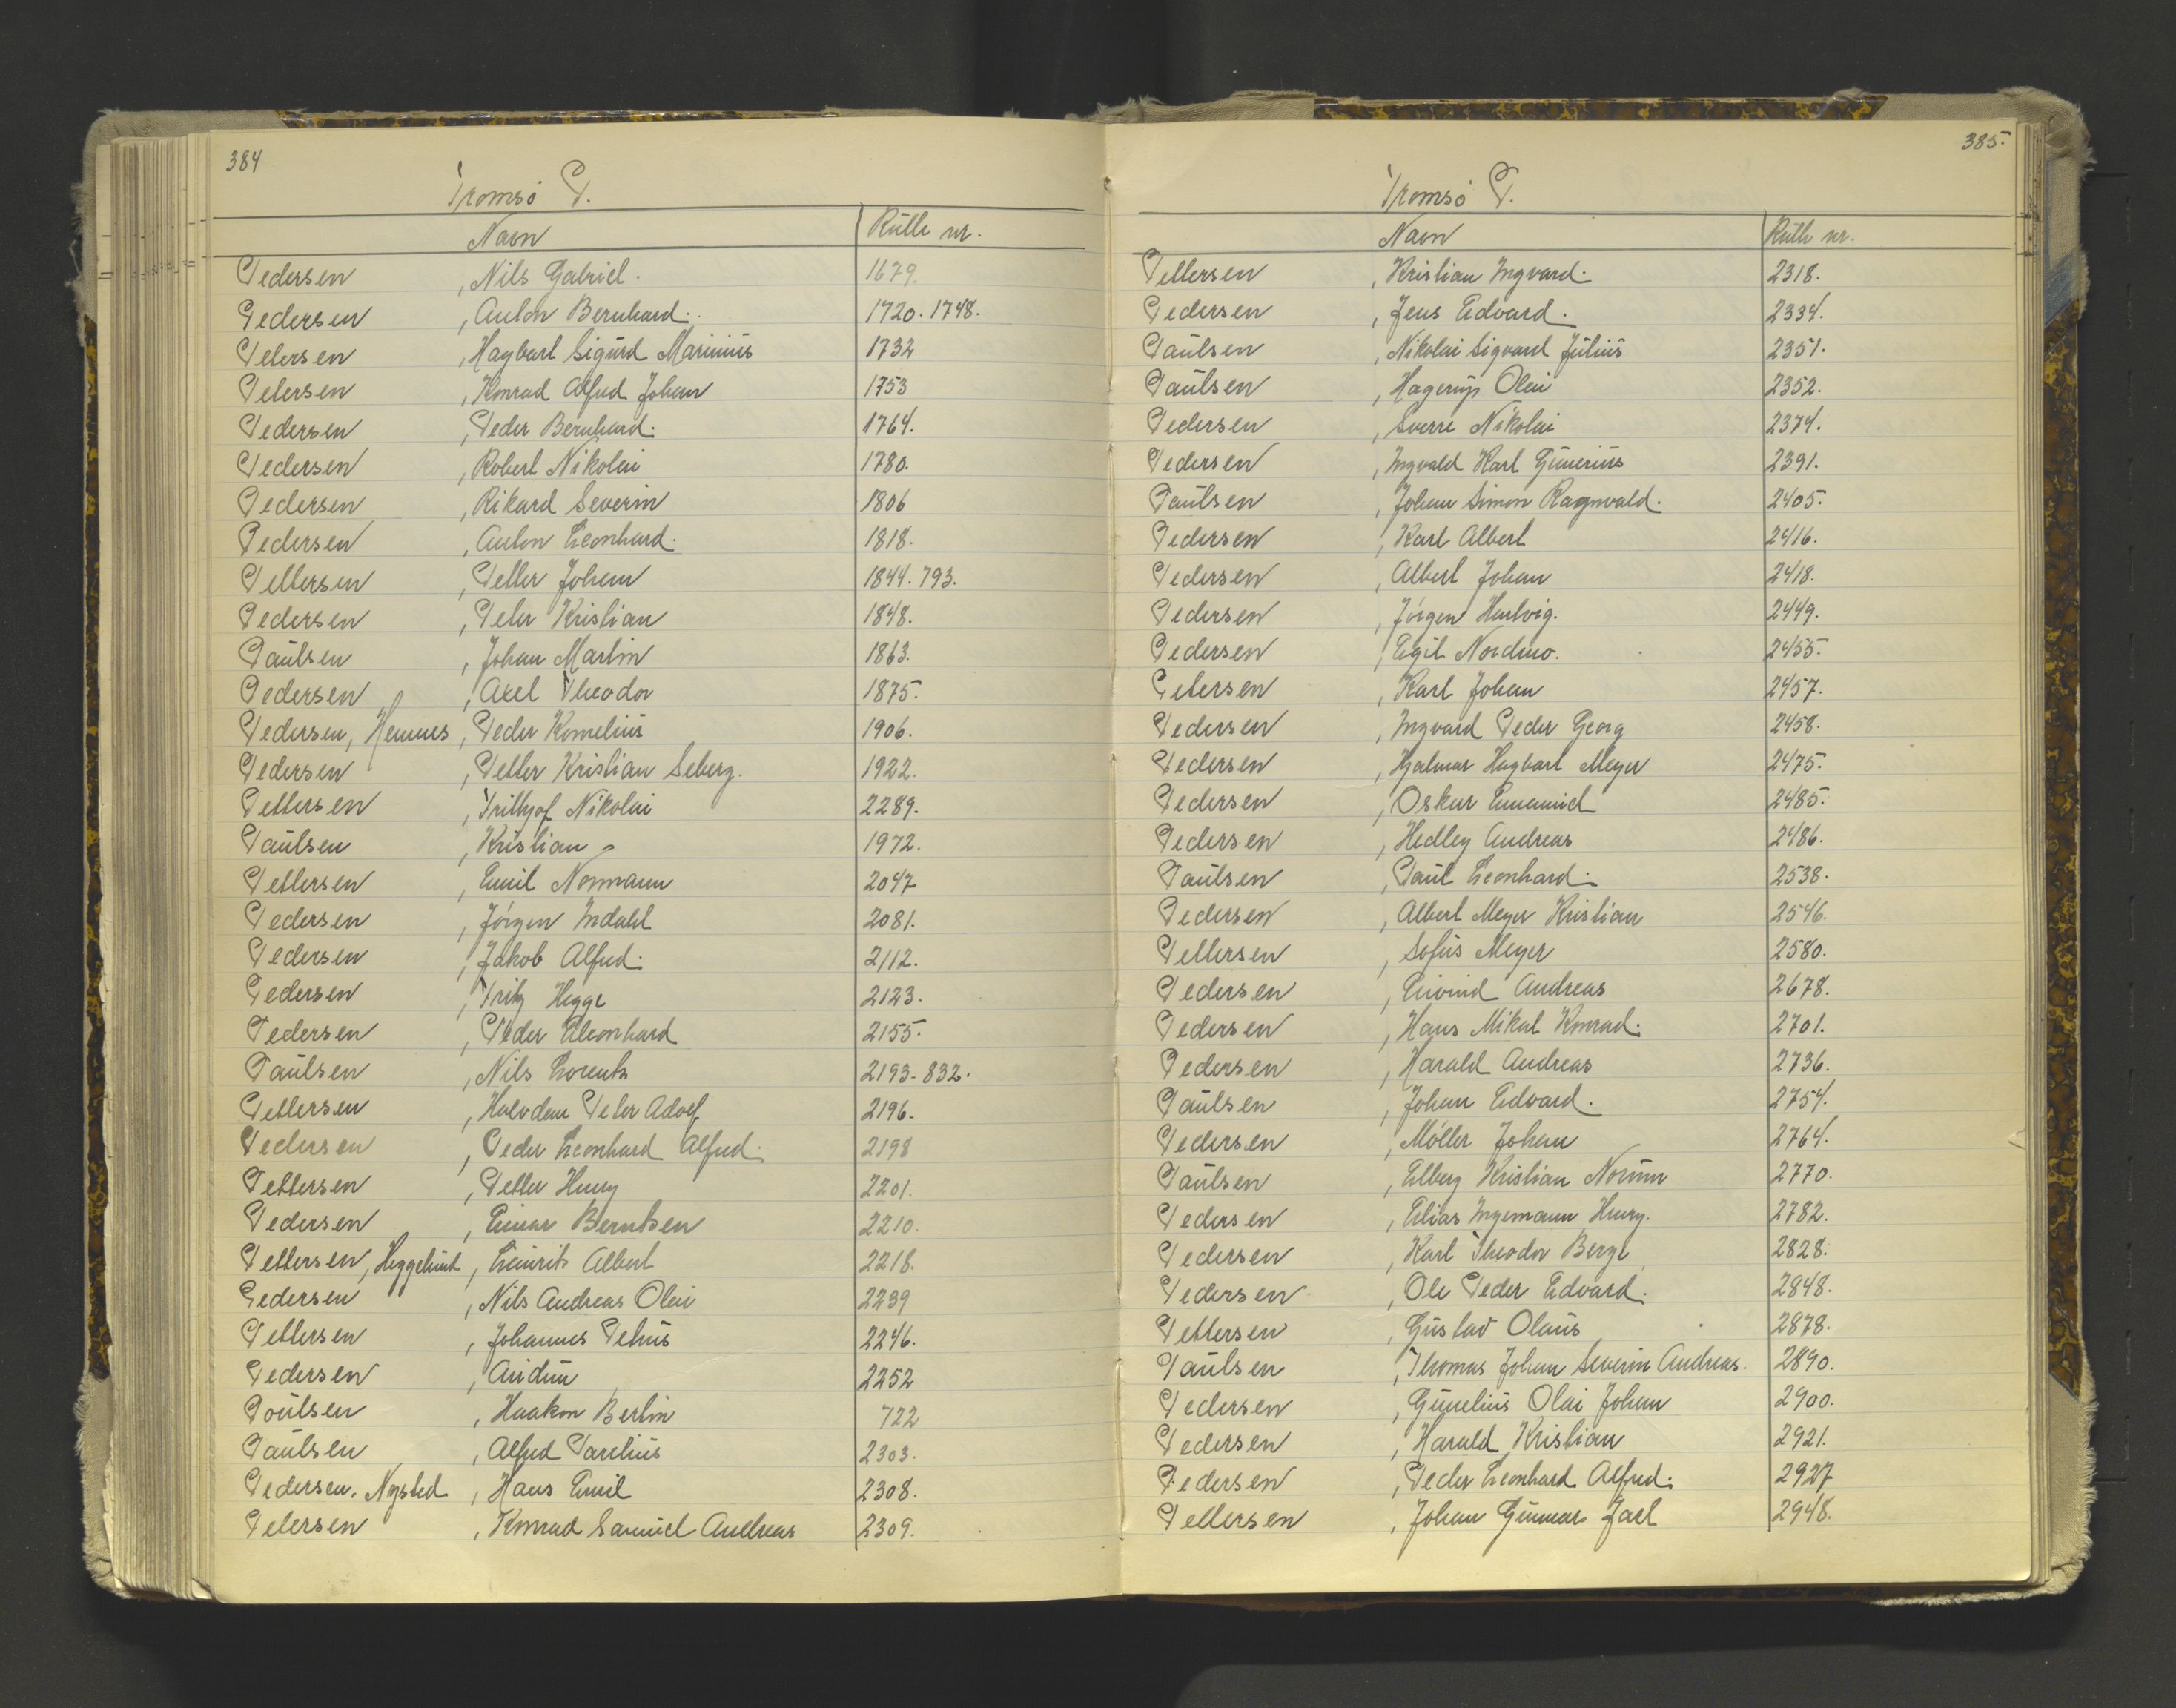 384
Tromsø P.
Navn Rulle nr.
Pedersen , Nils Gabriel. 1679.
Pedersen , Anton Bernhard. 1720. 1748.
Petersen , Hagbart Sigurd Marinius 1732
Petersen , Konrad Alfred Johan 1753
Pedersen , Peder Bernhard. 1764.
Pedersen , Robert Nikolai 1780.
Pedersen , Rikard Severin 1806
Pedersen , Anton Leonhard. 1818.
Pettersen , Petter Johan 1844. 793.
Pedersen , Peter Kristian 1848.
Paulsen , Johan Martin 1863.
Pedersen , Axel Theodor 1875.
Pedersen, Hemnes , Peder Kornelius 1906.
Pedersen , Petter Kristian Seberg. 1922.
Pettersen , Frithjof Nikolai 2289.
Paulsen , Kristian 1972.
Pettersen , Emil Normann 2047
Pedersen , Jörgen Indahl 2081.
Pedersen , Jakob Alfred. 2112.
Pedersen , Fritz Hegge 2123.
Pedersen , Peder Eleonhard 2155.
Paulsen , Nils Lorents 2193. 832.
Pettersen , Halvdan Peter Adolf 2196.
Pedersen , Peder Leonhard Alfred. 2198
Pettersen , Petter Henry 2201.
Pedersen , Einar Berntsen 2210.
Pettersen, Heggelund , Leinrits Albert 2218.
Pedersen , Nils Andreas Olai 2239
Pettersen , Johannes Petrus 2246.
Pedersen , Audun 2252
Poulsen , Haakon Bertin 722
Paulsen , Alfred Parelius 2303.
Pedersen. Nysted , Hans Emil 2308.
Petersen , Konrad Samuel Andreas 2309.
385.
Tromsø P.
Navn Rulle nr.
Pettersen , Kristian Ingvard. 2318.
Pedersen , Jens Edvard. 2334.
Paulsen , Nikolai Sigvard Julius 2351.
Paulsen , Hagerup Olai 2352.
Pedersen , Sverre Nikolai 2374.
Pedersen , Ingvald Karl Gunerius 2391.
Paulsen , Johan Simon Ragnvald. 2405.
Pedersen , Karl Albert 2416.
Pedersen , Albert Johan 2418.
Pedersen , Jörgen Hartvig. 2449.
Pedersen , Egil Nordmo. 2455.
Petersen , Karl Johan 2457.
Pedersen , Ingvard Peder Georg 2458.
Pedersen , Hjalmar Hagbart Meyer 2475.
Pedersen , Oskar Emanuel 2485.
Pedersen , Hedley Andreas 2486.
Paulsen , Paul Leonhard. 2538.
Pedersen , Albert Meyer Kristian 2546.
Pettersen , Sofus Meyer 2580.
Pedersen , Eivind Andreas 2678.
Pedersen , Hans Mikal Konrad. 2701.
Pedersen , Harald Andreas 2736.
Paulsen , Johan Edvard. 2754.
Pedersen , Möller Johan 2764.
Paulsen , Elberg Kristian Norum 2770.
Pedersen , Elias Ingemann Henry. 2782.
Pedersen , Karl Theodor Berge 2828.
Pedersen , Ole Peder Edvard. 2848.
Pettersen , Gustav Olaus 2878.
Paulsen , Thomas Johan Severin Andreas. 2890.
Pedersen , Gunelius Olai Johan 2900.
Pedersen , Harald Kristian 2921.
Pedersen , Peder Leonhard Alfred. 2927
Pettersen , Johan Gunnar Jarl 2948.